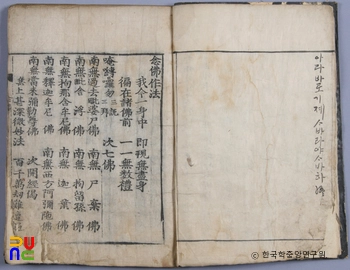 念佛作法
我今一身中 即現無盡身
徧在諸佛前 一一無數禮
唵 次七佛
南無過去毗婆尸佛 南無尸棄佛
南無毗舍浮佛 南無拘留孫佛
南無拘那含牟尼佛 南無迦葉佛
南無釋迦牟尼佛 南無西方阿彌陀佛
南無當來彌勒尊佛 次開經偈
無上甚深微妙法 百千萬劫難遭
아라바로기제 사바라야 사바하
©한국학중앙연구원